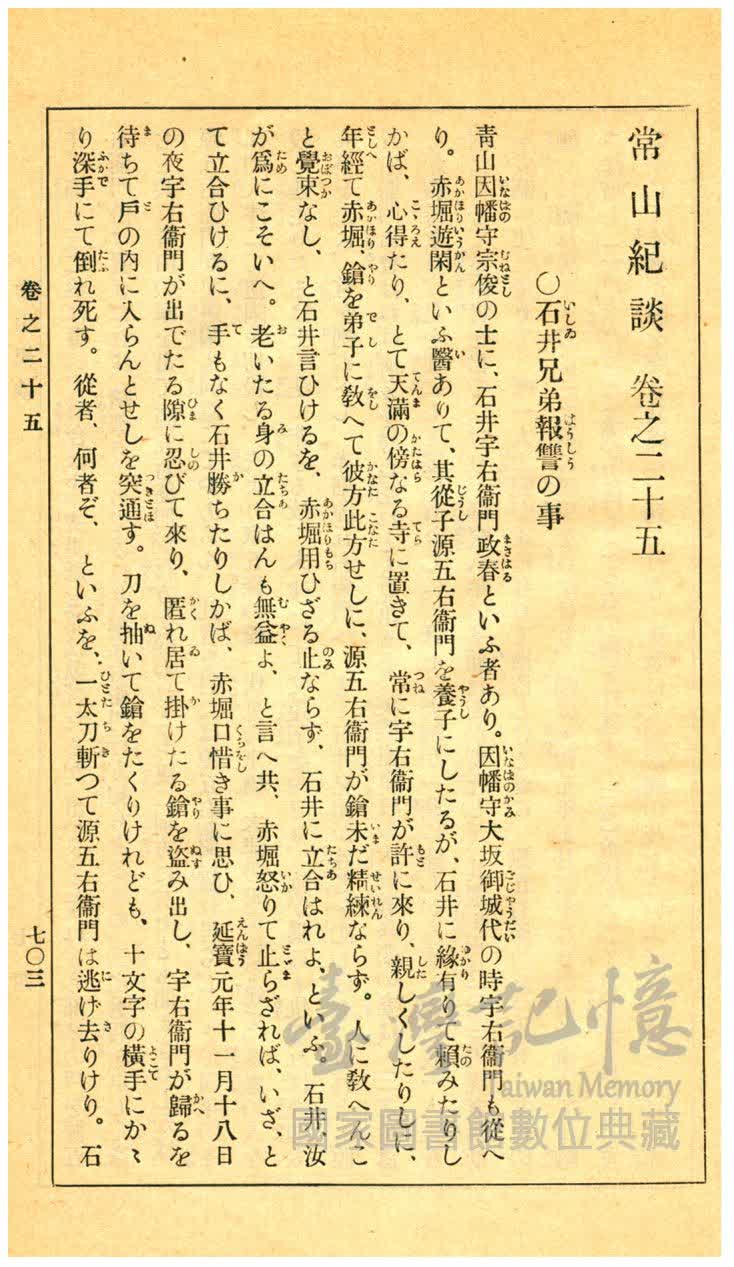 常山紀談　卷之二十五
〇石井兄弟報讐の事
青山因幡守宗俊の士に、石井宇右衞門政春といふ者あり。因幡守大坂御城代の時宇右衞門も從へ
り。赤堀遊閑といふ醫ありて、其從子源五右衞門を養子にしたるが、石井に緣有りて賴みたりし
かば、心得たり、とて天滿の傍なる寺に置きて、常に宇右衞門が許に來り、親しくしたりしに、
年經て赤堀、鎗を弟子に敎へて彼方此方せしに、源五右衞門が鎗未だ精練ならず。人に敎へんこ
と覺束なし、と石井言ひけるを、赤堀用ひざる止ならず、石井に立合はれよ、といふ。石井、汝
が爲にこそいへ。老いたる身の立合はんも無益よ、と言へ共、赤堀怒りて止らざれば、いざ、と
て立合ひけるに、手もなく石井勝ちたりしかば、赤堀口惜き事に思ひ、延寶元年十一月十八日
の夜宇右衞門が出でたる隙に忍びて來り、匿れ居て掛けたる鎗を盜み出し、宇右衞門が歸るを
待ちて戶の內に入らんとせしを突通す。刀を抽いて鎗をたくりけれども、十文字の橫手にかゝ
り深手にて倒れ死す。從者、何者ぞ、といふを、一太刀斬つて源五右衞門は逃げ去りけり。石
卷之二十五
七〇三
臺灣記憶
Taiwan Memory
國家圖書館數位典藏